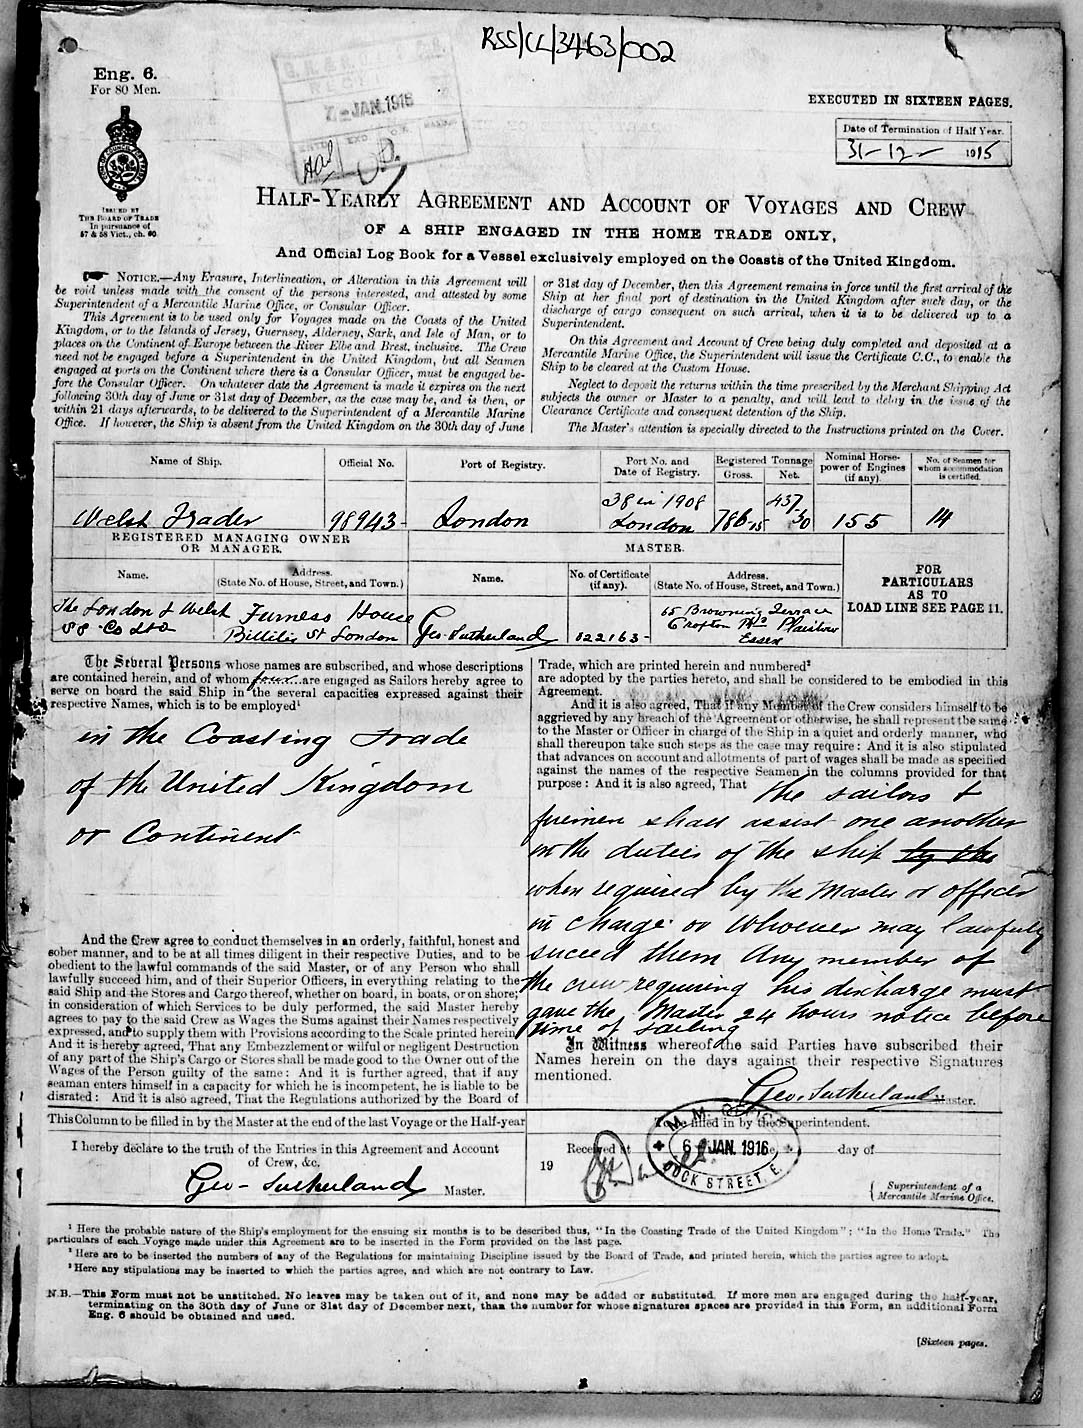 RSS/CL/3463/002
Eng. 6.
For 80 Men.
7-JAN.1916
EXECUTED IN SIXTEEN PAGES.
Date of Termination of Half Year.
31-12- 1915
ISSUED BY
THE BOARD OF TRADE
In pursuance of
57 & 58 Vict., ch. 60.
HALF-YEARLY AGREEMENT AND ACCOUNT OF VOYAGES AND CREW
OF A SHIP ENGAGED IN THE HOME TRADE ONLY,
And Official Log Book for a Vessel exclusively employed on the Coasts of the United Kingdom.
NOTICE.—Any Erasure, Interlineation, or Alteration in this Agreement will
be void unless made with the consent of the persons interested, and attested by some
Superintendent of a Mercantile Marine Office, or Consular Officer.
This Agreement is to be used only for Voyages made on the Coasts of the United
Kingdom, or to the Islands of Jersey, Guernsey, Alderney, Sark, and Isle of Man, or to
places on the Continent of Europe between the River Elbe and Brest, inclusive. The Crew
need not be engaged before a Superintendent in the United Kingdom, but all Seamen
engaged at ports on the Continent where there is a Consular Officer, must be engaged be-
fore the Consular Officer. On whatever date the Agreement is made it expires on the next
following 30th day of June or 31st day of December, as the case may be, and is then, or
within 21 days afterwards, to be delivered to the Superintendent of a Mercantile Marine
Office. If however, the Ship is absent from the United Kingdom on the 30th day of June
or 31st day of December, then this Agreement remains in force until the first arrival of the
Ship at her final port of destination in the United Kingdom after such day, or the
discharge of cargo consequent on such arrival, when it is to be delivered up to a
Superintendent.
On this Agreement and Account of Crew being duly completed and deposited at a
Mercantile Marine Office, the Superintendent will issue the Certificate C.C., to enable the
Ship to be cleared at the Custom House.
Neglect to deposit the returns within the time prescribed by the Merchant Shipping Act
subjects the owner or Master to a penalty, and will lead to delay in the issue of the
Clearance Certificate and consequent detention of the Ship.
The Master's attention is specially directed to the Instructions printed on the Cover.
Name of Ship. Official No. Port of Registry. Port No. and Date of Registry. Registered Tonnage Gross. Net. Nominal Horse-power of Engines (if any). No. of Seamen for whom accommodation is certified.
Welsh Trader 98943- London 38 in 1908 London 786.15 437.30 155 14
REGISTERED MANAGING OWNER
OR MANAGER.
MASTER.
FOR
PARTICULARS
AS TO
LOAD LINE SEE PAGE 11.
Name. Address. (State No. of House, Street, and Town.) Name. No. of Certificate (if any). Address. (State No. of House, Street, and Town.)
The London & Welsh
SS Co Ltd
Furness House
Billiter St London
Geo. Sutherland
022163-
65 Browning Terrace
Crofton Rd Plaistow
Essex
The Several Persons whose names are subscribed, and whose descriptions
are contained herein, and of whom four are engaged as Sailors hereby agree to
serve on board the said Ship in the several capacities expressed against their
respective Names, which is to be employed¹
in the Coasting Trade
of the United Kingdom
or Continent
And the Crew agree to conduct themselves in an orderly, faithful, honest and
sober manner, and to be at all times diligent in their respective Duties, and to be
obedient to the lawful commands of the said Master, or of any Person who shall
lawfully succeed him, and of their Superior Officers, in everything relating to the
said Ship and the Stores and Cargo thereof, whether on board, in boats, or on shore;
in consideration of which Services to be duly performed, the said Master hereby
agrees to pay to the said Crew as Wages the Sums against their Names respectively
expressed, and to supply them with Provisions according to the Scale printed herein.
And it is hereby agreed, That any Embezzlement or wilful or negligent Destruction
of any part of the Ship's Cargo or Stores shall be made good to the Owner out of the
Wages of the Person guilty of the same: And it is further agreed, that if any
seaman enters himself in a capacity for which he is incompetent, he is liable to be
disrated: And it is also agreed, That the Regulations authorized by the Board of
Trade, which are printed herein and numbered²
are adopted by the parties hereto, and shall be considered to be embodied in this
Agreement.
And it is also agreed, That if any Member of the Crew considers himself to be
aggrieved by any breach of the Agreement or otherwise, he shall represent the same
to the Master or Officer in charge of the Ship in a quiet and orderly manner, who
shall thereupon take such steps as the case may require: And it is also stipulated
that advances on account and allotments of part of wages shall be made as specified
against the names of the respective Seamen in the columns provided for that
purpose: And it is also agreed, That the sailors &
firemen shall assist one another
in the duties of the ship by the
when required by the Master or officer
in charge or whoever may lawfully
succeed them Any member of
the crew requiring his discharge must
gave the Master 24 hours notice before
time of sailing
In Witness whereof the said Parties have subscribed their
Names herein on the days against their respective Signatures
mentioned.
Geo. Sutherland Master.
This Column to be filled in by the Master at the end of the last Voyage or the Half-year
I hereby declare to the truth of the Entries in this Agreement and Account
of Crew, &c.
Geo- Sutherland Master.
filled in by the Superintendent.
Received at day of
19
M. M. OFFICE
6 JAN. 1916
DOCK STREET, E.
Superintendent of a
Mercantile Marine Office.
¹ Here the probable nature of the Ship's employment for the ensuing six months is to be described thus, "In the Coasting Trade of the United Kingdom"; "In the Home Trade." The
particulars of each Voyage made under this Agreement are to be inserted in the Form provided on the last page.
² Here are to be inserted the numbers of any of the Regulations for maintaining Discipline issued by the Board of Trade, and printed herein, which the parties agree to adopt.
³ Here any stipulations may be inserted to which the parties agree, and which are not contrary to Law.
N.B.—This Form must not be unstitched. No leaves may be taken out of it, and none may be added or substituted. If more men are engaged during the half-year,
terminating on the 30th day of June or 31st day of December next, than the number for whose signatures spaces are provided in this Form, an additional Form
Eng. 6 should be obtained and used.
[Sixteen pages.